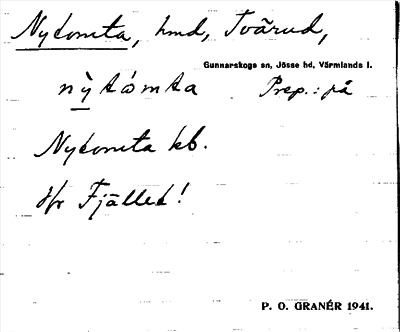 Nytomta, hmd, Tvärud,
Gunnarskogs sn, Jösse hd, Värmlands l.
nỳtómta Prep.: på
Nytomta kb.
Hr Fjället!
P. O. GRANÉR 1941.